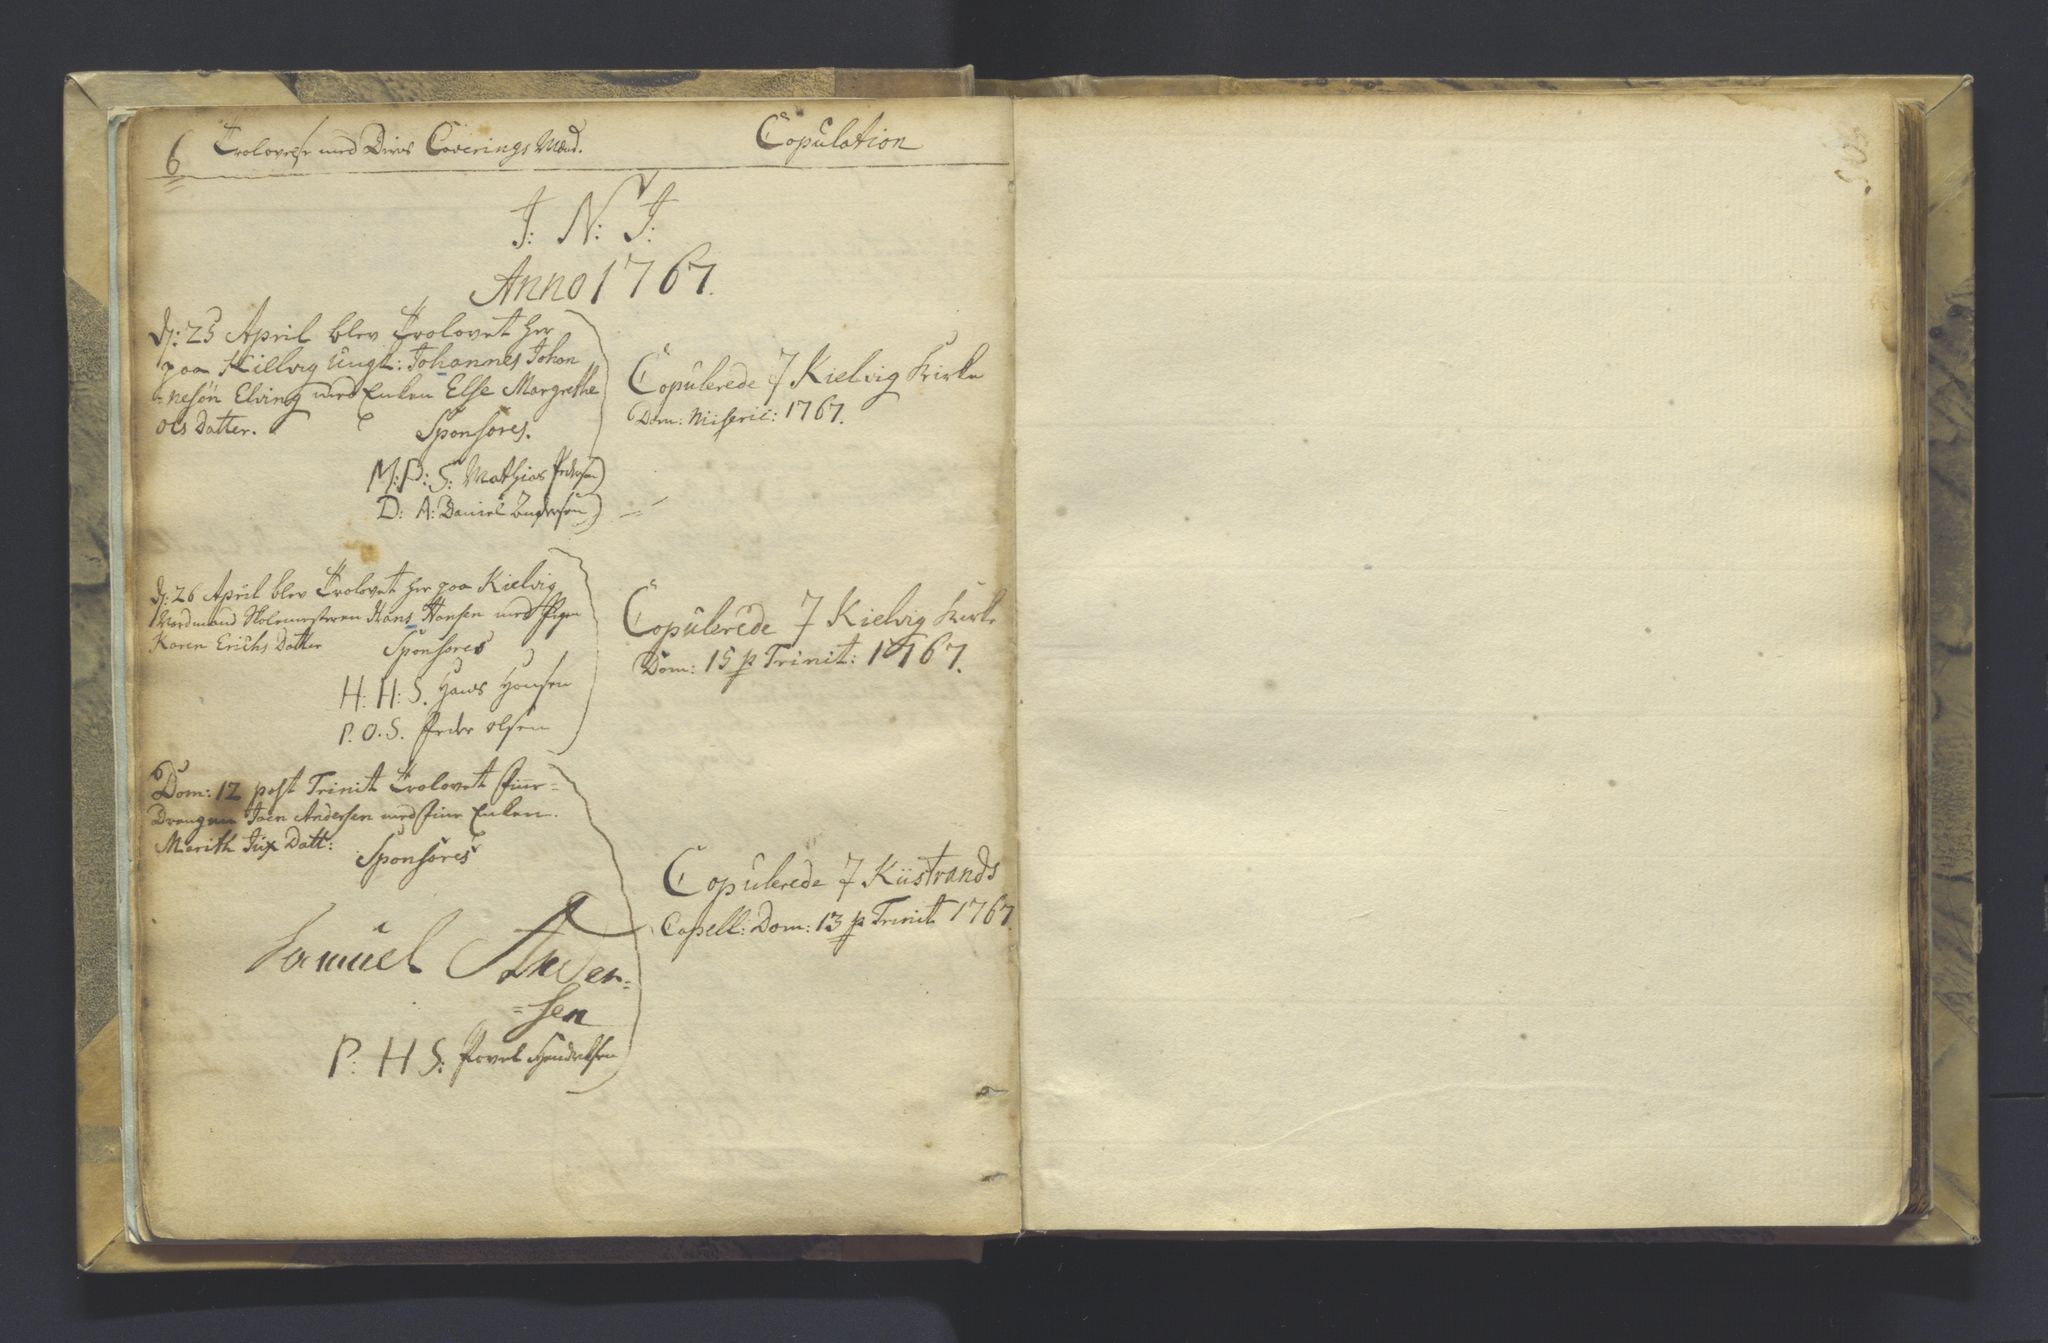 6 Trolovelse med Deres Caverings Mænd.
Copulation
J: N: J:
Anno 1767.
D: 25 April blev Trolovet her
paa Kielvig Ungk: Johannes Johan
=nesøn Elving med Enken Else Margrethe
Ols Datter.
Sponsores.
M: P: S: Mathias Pedersen
D: A: Daniel Andersen
Copulerede J Kielvig Kirke
Dom: Miseric: 1767.
D: 26 April blev Trolovet her paa Kielvig
Nordmand Skolemesteren Hans Hansen med Pigen
Karen Erichs Datter
Sponsores
H: H: S. Hans Hansen
P. O. S. Peder Olsen
Copulerede J Kielvig Kirke
Dom: 15 p Trinit: 1767.
Dom: 12 post Trinit Trolovet Finne=
Drengen Joen Andersen med Finne Enken.
Marith Datt:
Sponsores
Samuel Ander=
=sen
P: H S: Povel Hendrichsen
Copulerede J Kiistrands
Capell: Dom: 13 p Trinit 1767.